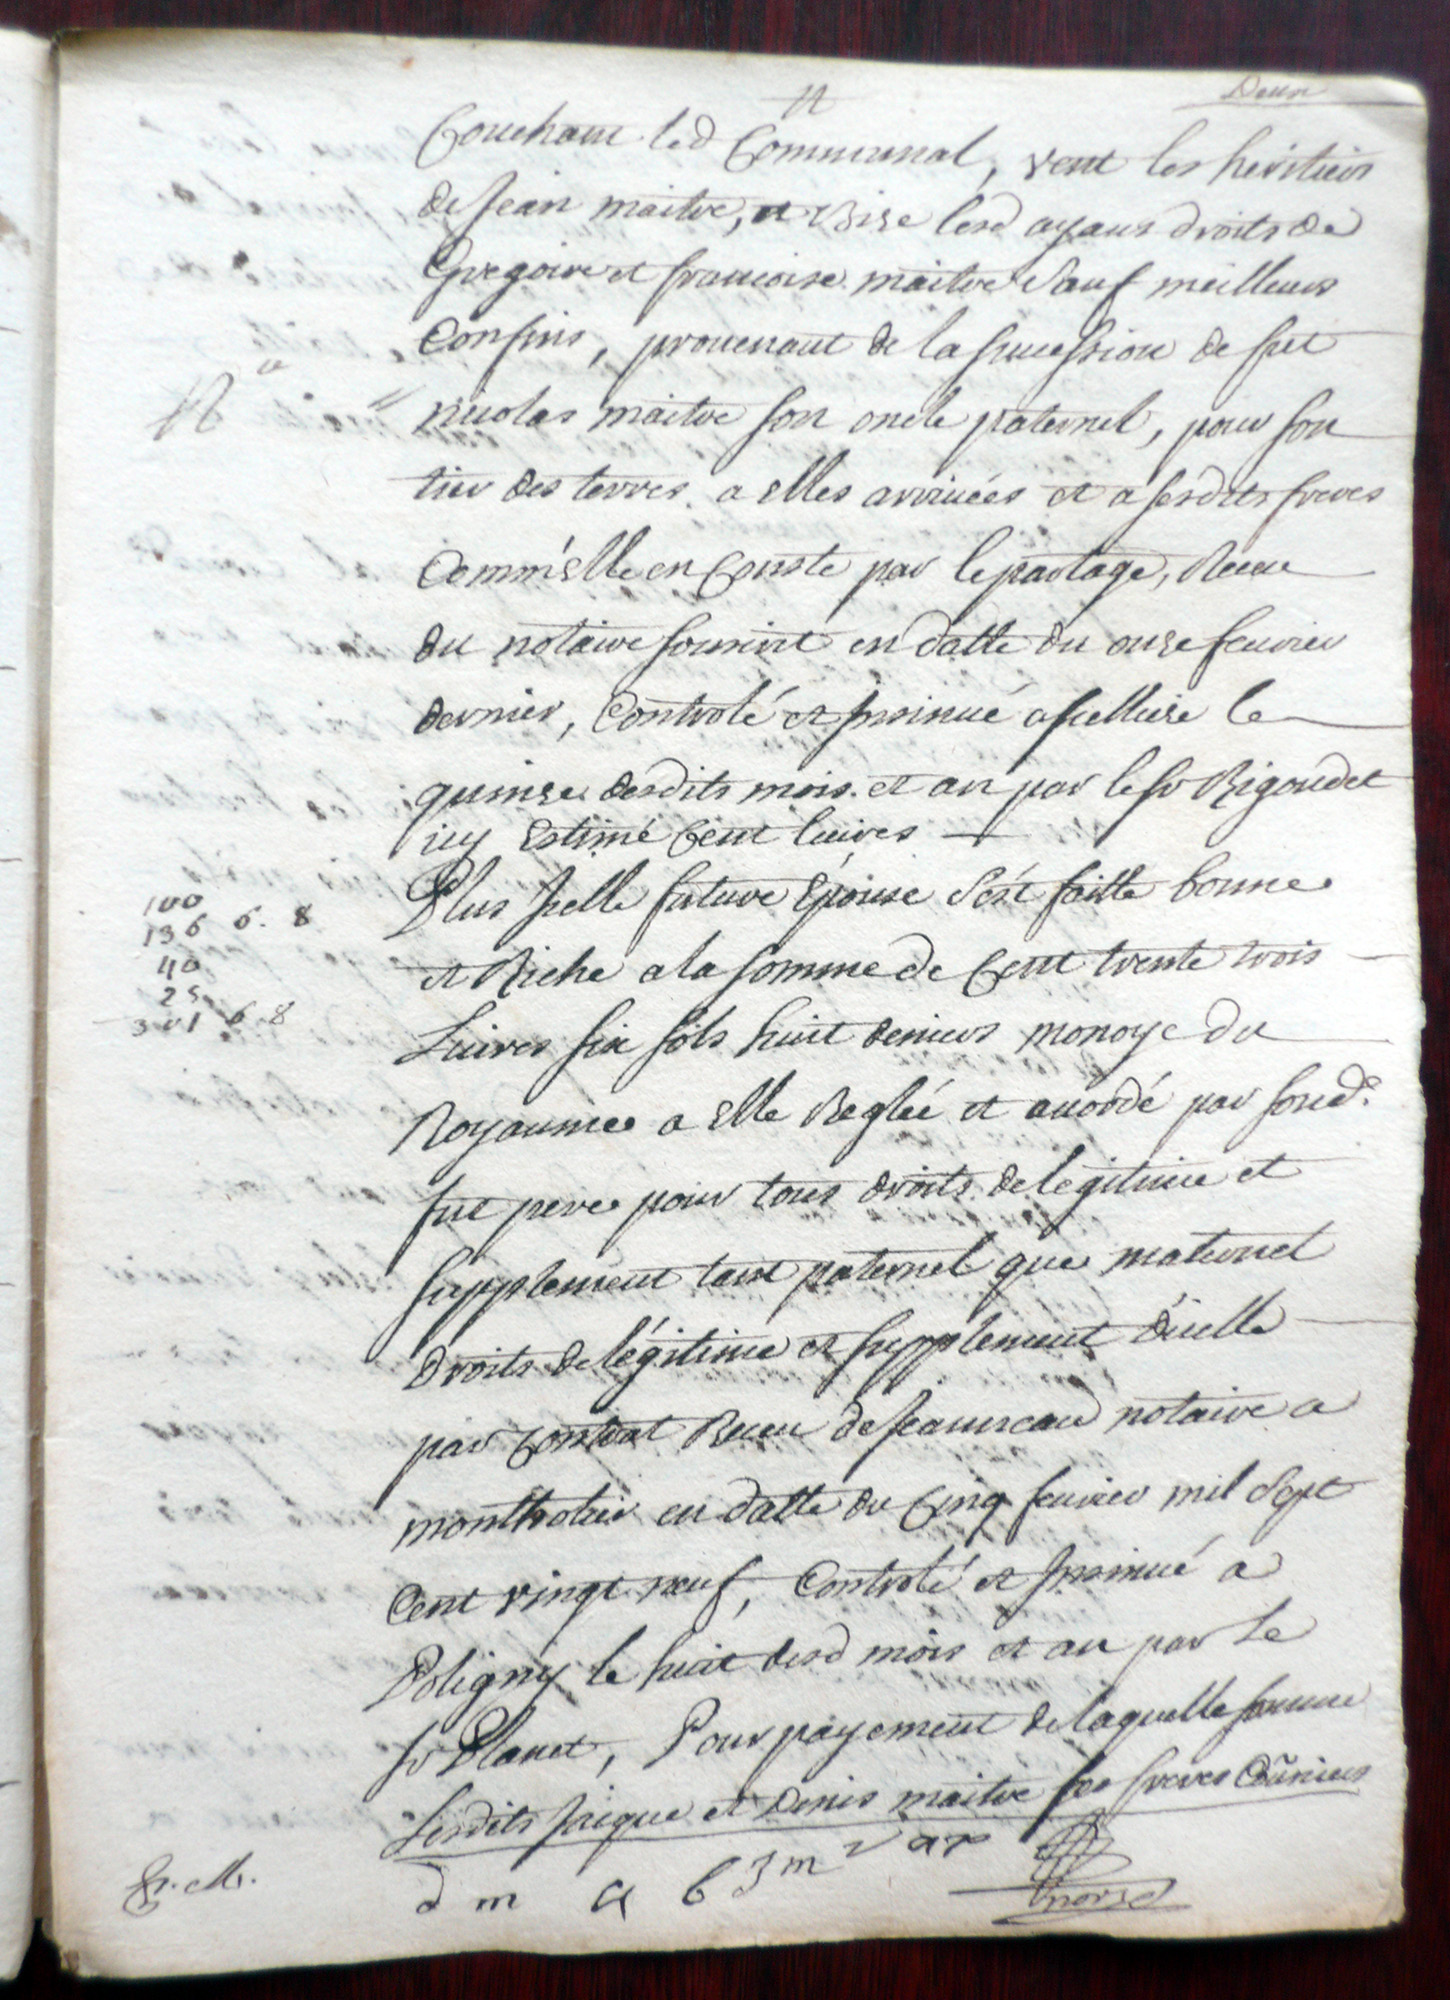 Deux
Couchant led Communal, vent les heritiers
de Jean maitre, et Bise lesd ayans droits de
Gregoire et francoise maitre Sauf meilleurs
Confins, prouenant de la succession de fut
nicolas maitre son oncle paternel, pour son
tier des terres a elles arriuées et a sesdits freres
Comm'elle en Conste par le partage, Receu
du notaire sousrit en datte du onse feurier
dernier, Controlé et insinué a selliere le
quinse desdits mois et an par le sr Rigoudet
icy Estimé Cent liures
Plus icelle future Epouse s'est faitte bonne
et Riche a la somme de Cent trente trois
Liures six sols huit deniers monoye du
Royaume a elle Reglée et accordé par sond.
fut pere pour tous droits de legitime et
supplement tant paternel que maternel
droits de légitime et supplement d'icelle
par Contrat Receu de Jeanneaud notaire a
montholier en datte du Cinq feurier mil Sept
Cent vingt neuf, Controlé et insinué a
Poligny le huit desd mois et an par le
sr Planet, Pour payement de laquelle somme
Lesdits Jaique et Denis maitre ses freres Coũniers
100
136 6. 8
40
25
301 6. 8
d m a b 3 m